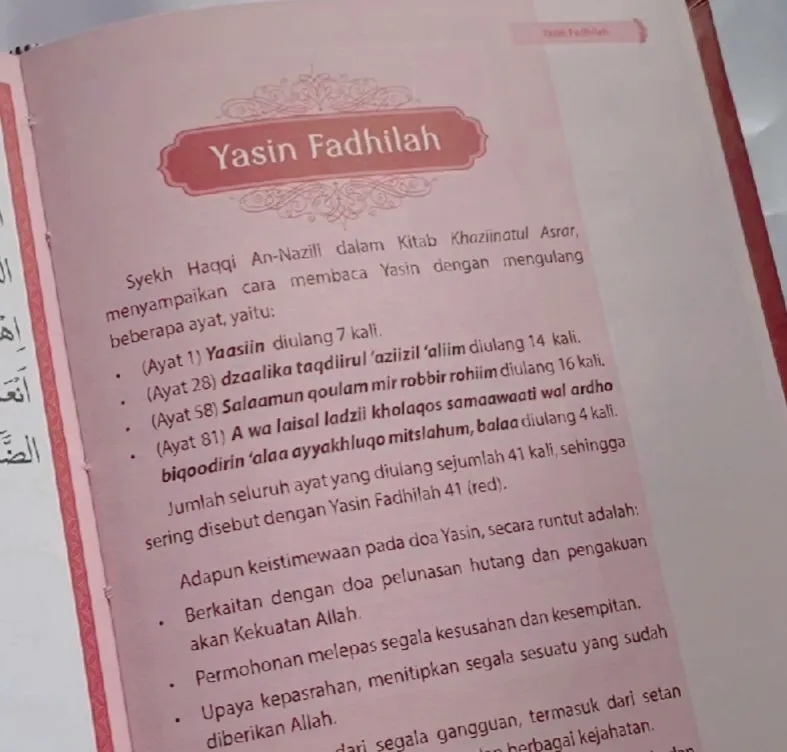 Yasin Fadhilah
Yasin Fadhilah
Syekh Haqqi An-Nazili dalam Kitab Khaziinatul Asrar,
menyampaikan cara membaca Yasin dengan mengulang
beberapa ayat, yaitu:
• (Ayat 1) Yaasiin diulang 7 kali.
• (Ayat 28) dzaalika taqdiirul ‘aziizil ‘aliim diulang 14 kali.
• (Ayat 58) Salaamun qoulam mir robbir rohiim diulang 16 kali.
• (Ayat 81) A wa laisal ladzii kholaqos samaawaati wal ardho
biqoodirin ‘alaa ayyakhluqo mitslahum, balaa diulang 4 kali.
Jumlah seluruh ayat yang diulang sejumlah 41 kali, sehingga
sering disebut dengan Yasin Fadhilah 41 (red).
Adapun keistimewaan pada doa Yasin, secara runtut adalah:
• Berkaitan dengan doa pelunasan hutang dan pengakuan
akan Kekuatan Allah.
• Permohonan melepas segala kesusahan dan kesempitan.
• Upaya kepasrahan, menitipkan segala sesuatu yang sudah
diberikan Allah.
dari segala gangguan, termasuk dari setan
berbagai kejahatan.